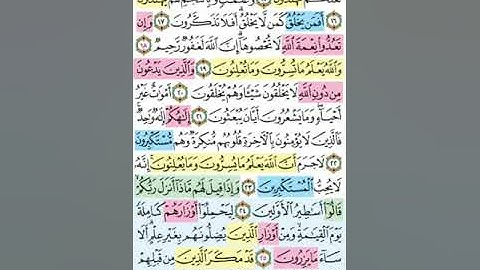 وَعَلَـٰمَـٰتٍ وَبِٱلنَّجْمِ هُمْ يَهْتَدُونَ
١٦ أَفَمَن يَخْلُقُ كَمَن لَّا يَخْلُقُ أَفَلَا تَذَكَّرُونَ ١٧ وَإِن
تَعُدُّوا۟ نِعْمَةَ ٱللَّهِ لَا تُحْصُوهَآ إِنَّ ٱللَّهَ لَغَفُورٌ رَّحِيمٌ ١٨
وَٱللَّهُ يَعْلَمُ مَا تُسِرُّونَ وَمَا تُعْلِنُونَ ١٩ وَٱلَّذِينَ يَدْعُونَ
مِن دُونِ ٱللَّهِ لَا يَخْلُقُونَ شَيْـًٔا وَهُمْ يُخْلَقُونَ ٢٠ أَمْوَٰتٌ غَيْرُ
أَحْيَآءٍ وَمَا يَشْعُرُونَ أَيَّانَ يُبْعَثُونَ ٢١ إِلَـٰهُكُمْ إِلَـٰهٌ وَٰحِدٌ
فَٱلَّذِينَ لَا يُؤْمِنُونَ بِٱلْـَٔاخِرَةِ قُلُوبُهُم مُّنكِرَةٌ وَهُم مُّسْتَكْبِرُونَ
٢٢ لَا جَرَمَ أَنَّ ٱللَّهَ يَعْلَمُ مَا يُسِرُّونَ وَمَا يُعْلِنُونَ إِنَّهُۥ
لَا يُحِبُّ ٱلْمُسْتَكْبِرِينَ ٢٣ وَإِذَا قِيلَ لَهُم مَّاذَآ أَنزَلَ رَبُّكُمْ
قَالُوٓا۟ أَسَـٰطِيرُ ٱلْأَوَّلِينَ ٢٤ لِيَحْمِلُوٓا۟ أَوْزَارَهُمْ كَامِلَةً
يَوْمَ ٱلْقِيَـٰمَةِ وَمِنْ أَوْزَارِ ٱلَّذِينَ يُضِلُّونَهُم بِغَيْرِ عِلْمٍ أَلَا
سَآءَ مَا يَزِرُونَ ٢٥ قَدْ مَكَرَ ٱلَّذِينَ مِن قَبْلِهِمْ